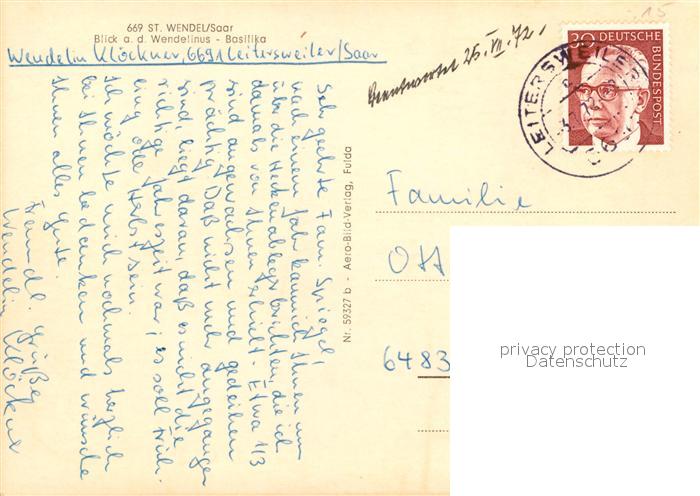 669 ST. WENDEL/Saar
Blick a. d. Wendelinus - Basilika
Wendelin Klöckner, 6691 Leitersweiler/Saar
Beantwortet 25. VII. 72.
15
30 DEUTSCHE BUNDESPOST
LEITERSWEILER
Sehr geehrte Fam. Spiegel,
nach einem Jahr kann ich Ihnen nun
über die Heckenableger berichten, die ich
damals von Ihnen erhielt. Etwa 1/3
sind angewachsen und gedeihen
prächtig. Daß nicht mehr angegangen
sind, liegt daran, daß es nicht die
richtige Jahreszeit war; es soll Früh-
ling oder Herbst sein.
Ich möchte mich nochmals herzlich
bei Ihnen bedanken und wünsche
Ihnen alles Gute.
Freundl. Grüße
Wendelin Klöckner
Nr. 59327 b - Aero-Bild-Verlag, Fulda
Familie
Ott
6483
privacy protection
Datenschutz